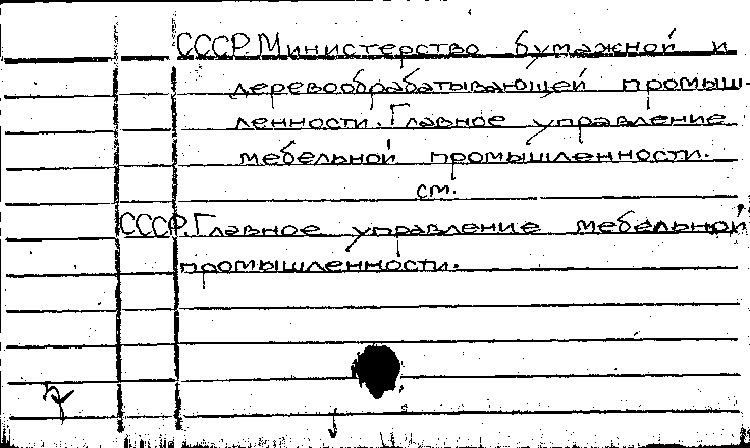 СССР. Министерство бумажной и
деревообрабатывающей промыш-
ленности. Главное управление
мебельной промышленности.
см.
СССР. Главное управление мебельной
промышленности.